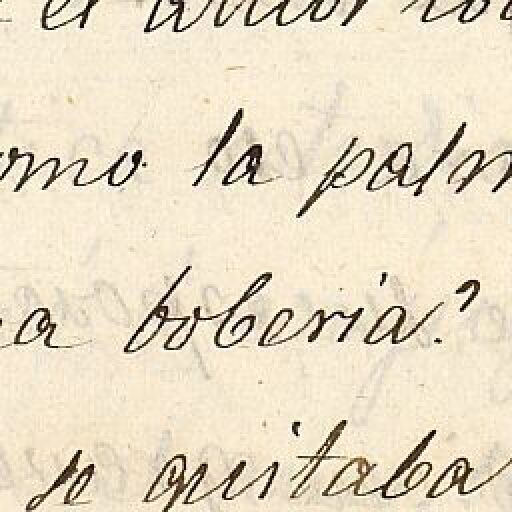 el amor
omo la palm
a boberia?
se quitaba